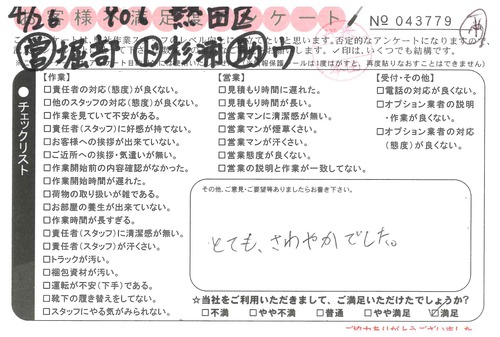 4/26 YOL 熱田区
お客様満足度アンケート
No 043779
営 堀部 杉瀬 助ワ
チェックリスト
【作業】
□責任者の対応(態度)が良くない。
□他のスタッフの対応(態度)が良くない。
□作業を見ていて不安がある。
□責任者(スタッフ)に好感が持てない。
□お客様への挨拶が出来ていない。
□ご近所への挨拶・気遣いが無い。
□作業開始前の内容確認がなかった。
□作業開始時間が遅れた。
□荷物の取り扱いが雑である。
□お部屋の養生が出来ていない。
□作業時間が長すぎる。
□責任者(スタッフ)に清潔感が無い。
□責任者(スタッフ)が汗くさい。
□トラックが汚い。
□梱包資材が汚い。
□運転が不安(下手)である。
□靴下の履き替えをしてない。
□スタッフにやる気がみられない。
【営業】
□見積もり時間に遅れた。
□見積もり時間が長い。
□営業マンに清潔感が無い。
□営業マンが煙草くさい。
□営業マンが汗くさい。
□営業態度が良くない。
□営業の説明と作業が一致してない。
【受付・その他】
□電話の対応が良くない。
□オプション業者の説明
・作業が良くない。
□オプション業者の対応
(態度)が良くない。
その他、ご意見・ご要望等ありましたらお書き下さい。
とても、さわやかでした。
☆当社をご利用いただきまして、ご満足いただけたでしょうか?
□不満 □やや不満 □普通 □やや満足 ☑満足
ご協力ありがとうございました